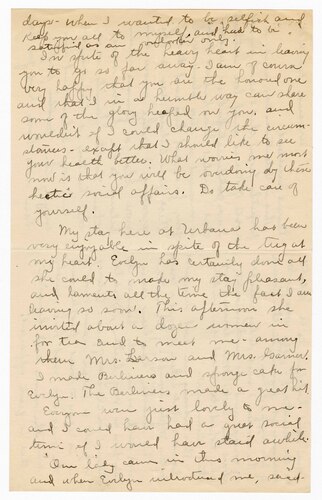 days. When I wanted to be selfish and
keep you all to myself and had to be
satisfied as an only.
In spite of the heavy heart in leaving
you to go so far away. I am of course
very happy that you are the honored one
and that I in a humble way can share
some of the glory heaped on you, and
wouldn't if I could change the circum-
stances - except that I should like to see
your health better. What worries me most
now is that you will be overdoing by these
hectic social affairs. Do take care of
yourself.
My stay here at Urbana has been
very enjoyable in spite of the tug at
my heart. Evelyn has certainly done all
she could to made my stay pleasant,
and laments all the time the fact I am
leaving so soon. This afternoon she
invited about a dozen women in
for tea and to meet me - among
them Mrs. Larson and Mrs.
I made Berliners and sponge cake for
Evelyn. The Berliners made a great hit
Everyone were just lovely to me -
and I could have had a great social
time if I would have staid awhile.
One lady came in this morning
and when Evelyn introduced me, said